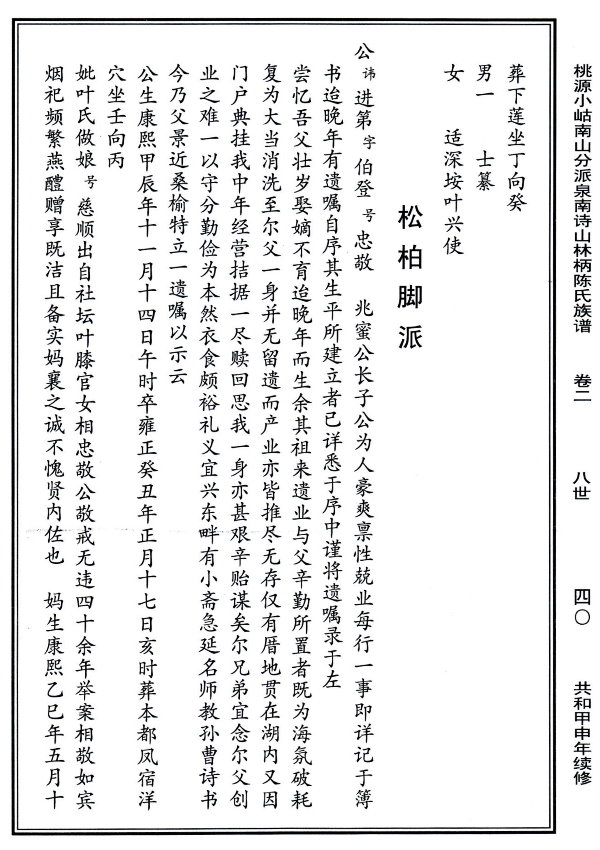 桃源小岵南山分派泉南诗山林柄陈氏族谱 卷二 八世 四〇 共和甲申年续修
葬下莲坐丁向癸
男一 士纂
女 适深垵叶兴使
松柏脚派
公讳进第字伯登号忠敬 兆蜜公长子公为人豪爽禀性兢业每行一事即详记于簿
书迨晚年有遗嘱自序其生平所建立者已详悉于序中谨将遗嘱录于左
尝忆吾父壮岁娶嫡不育迨晚年而生余其祖来遗业与父辛勤所置者既为海氛破耗
复为大当消洗至尔父一身并无留遗而产业亦皆推尽无存仅有厝地贯在湖内又因
门户典挂我中年经营拮据一尽赎回思我一身亦甚艰辛贻谋矣尔兄弟宜念尔父创
业之难一以守分勤俭为本然衣食颇裕礼义宜兴东畔有小斋急延名师教孙曹诗书
今乃父景近桑榆特立一遗嘱以示云
公生康熙甲辰年十一月十四日午时卒雍正癸丑年正月十七日亥时葬本都凤宿洋
穴坐壬向丙
妣叶氏做娘号慈顺出自社坛叶膝官女相忠敬公敬戒无违四十余年举案相敬如宾
烟祀频繁燕醴赠享既洁且备实妈襄之诚不愧贤内佐也 妈生康熙乙巳年五月十